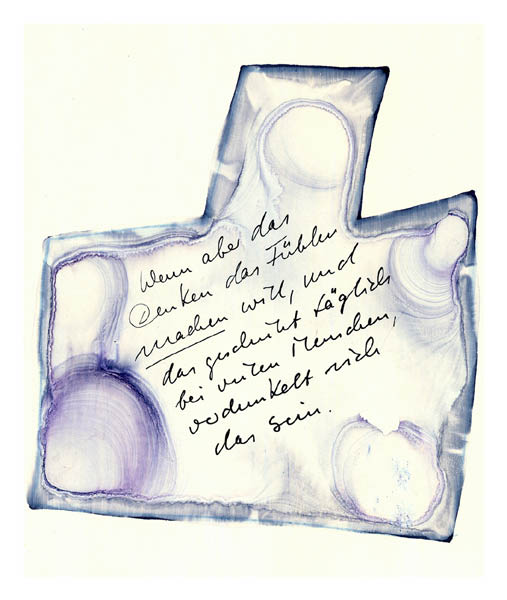 Wenn aber das
Denken das Fühlen
machen will, und
das geschieht täglich
bei vielen Menschen,
verdunkelt sich
das Sein.